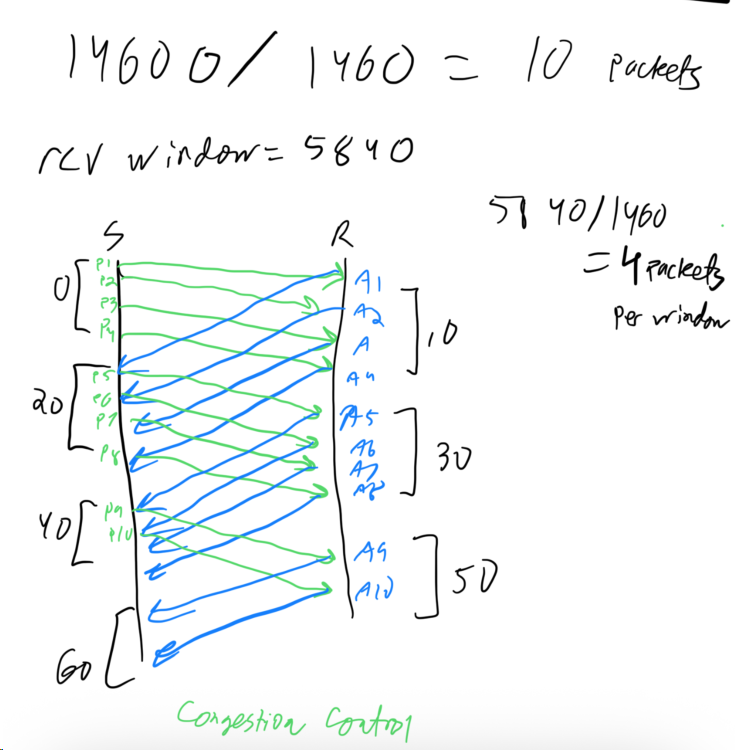 14600 / 1460 = 10 packets
rcv window = 5840
5840/1460
= 4 packets
per window
S R
0
P1
P2
P3
P4
A1
A2
A
A4
10
20
P5
P6
P7
P8
A5
A6
A7
A8
30
40
P9
P10
A9
A10
50
60
Congestion Control